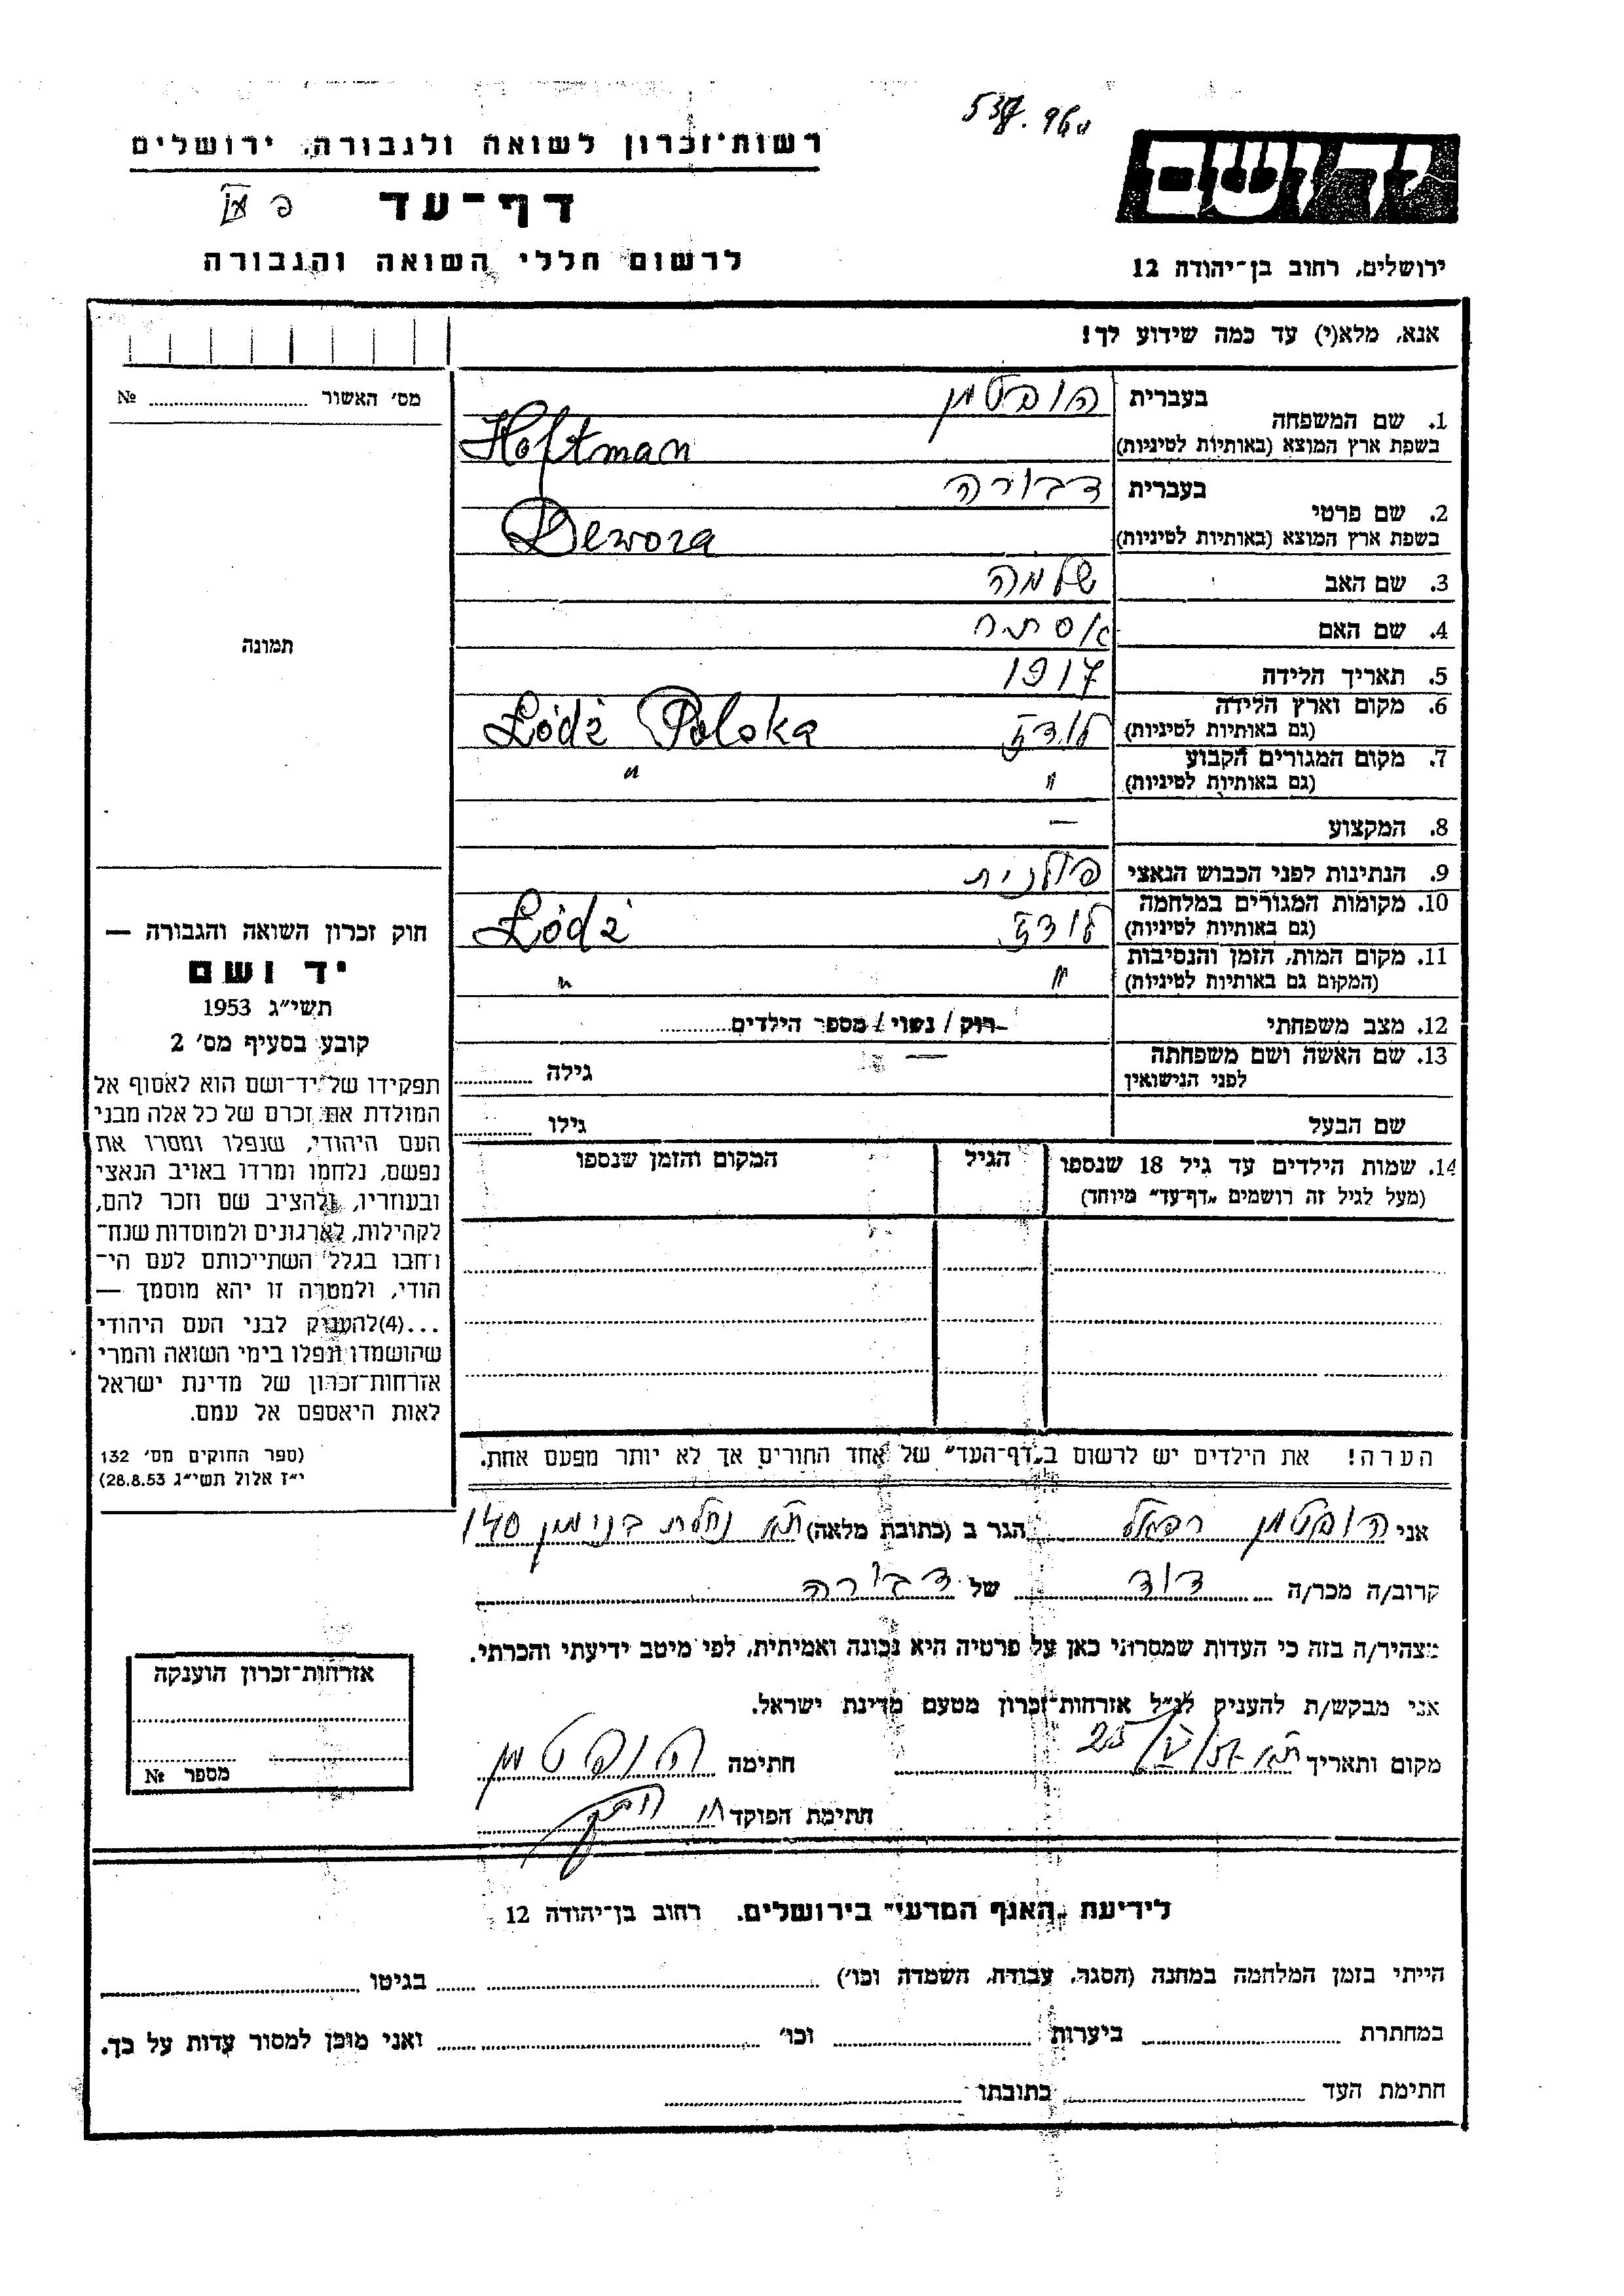 רשות־זכרון לשואה ולגבורה, ירושלים
דף־עד
לרשום חללי השואה והגבורה
יד ושם
ירושלים, רחוב בן־יהודה 12
אנא, מלא(י) עד כמה שידוע לך!
מס' האשור №
תמונה
1. שם המשפחה בעברית הופטמן
בשפת ארץ המוצא (באותיות לטיניות) Hoftman
2. שם פרטי בעברית דבורה
בשפת ארץ המוצא (באותיות לטיניות) Dewora
3. שם האב שלמה
4. שם האם אסתר
5. תאריך הלידה 1917
6. מקום וארץ הלידה (גם באותיות לטיניות) לודז Łódź Polska
7. מקום המגורים הקבוע (גם באותיות לטיניות) " "
8. המקצוע —
9. הנתינות לפני הכבוש הנאצי פולנית
10. מקומות המגורים במלחמה (גם באותיות לטיניות) לודז Łódź
11. מקום המות, הזמן והנסיבות (המקום גם באותיות לטיניות) " "
12. מצב משפחתי רוק / נשוי / מספר הילדים
13. שם האשה ושם משפחתה לפני הנישואין — גילה
שם הבעל גילו
14. שמות הילדים עד גיל 18 שנספו (מעל לגיל זה רושמים „דף־עד" מיוחד) הגיל המקום והזמן שנספו
חוק זכרון השואה והגבורה —
יד ושם
תשי"ג 1953
קובע בסעיף מס' 2
תפקידו של יד־ושם הוא לאסוף אל
המולדת את זכרם של כל אלה מבני
העם היהודי, שנפלו ומסרו את
נפשם, נלחמו ומרדו באויב הנאצי
ובעוזריו, ולהציב שם וזכר להם,
לקהילות, לארגונים ולמוסדות שנח־
רחבו בגלל השתייכותם לעם הי־
הודי, ולמטרה זו יהא מוסמך —
...(4)להעניק לבני העם היהודי
שהושמדו ונפלו בימי השואה והמרי
אזרחות־זכרון של מדינת ישראל
לאות היאספם אל עמם.
(ספר החוקים מס' 132
י"ז אלול תשי"ג 28.8.53)
הערה! את הילדים יש לרשום ב„דף־העד" של אחד החורים אך לא יותר מפעם אחת.
אני הופטמן רפאל הגר ב (כתובת מלאה) ת"א נחלת בנימין 140
קרוב/ה מכר/ה דוד של דבורה
מצהיר/ה בזה כי העדות שמסרתי כאן על פרטיה היא נכונה ואמיתית, לפי מיטב ידיעתי והכרתי.
אני מבקש/ת להעניק לנ"ל אזרחות־זכרון מטעם מדינת ישראל.
מקום ותאריך ת"א חתימה הופטמן
חתימת הפוקד
אזרחות־זכרון הוענקה
מספר №
לידיעת „האגף המדעי" בירושלים, רחוב בן־יהודה 12
הייתי בזמן המלחמה במחנה (הסגר, עבודה, השמדה וכו') בגיטו
במחתרת ביערות וכו' ואני מוכן למסור עדות על כך.
חתימת העד כתובתו